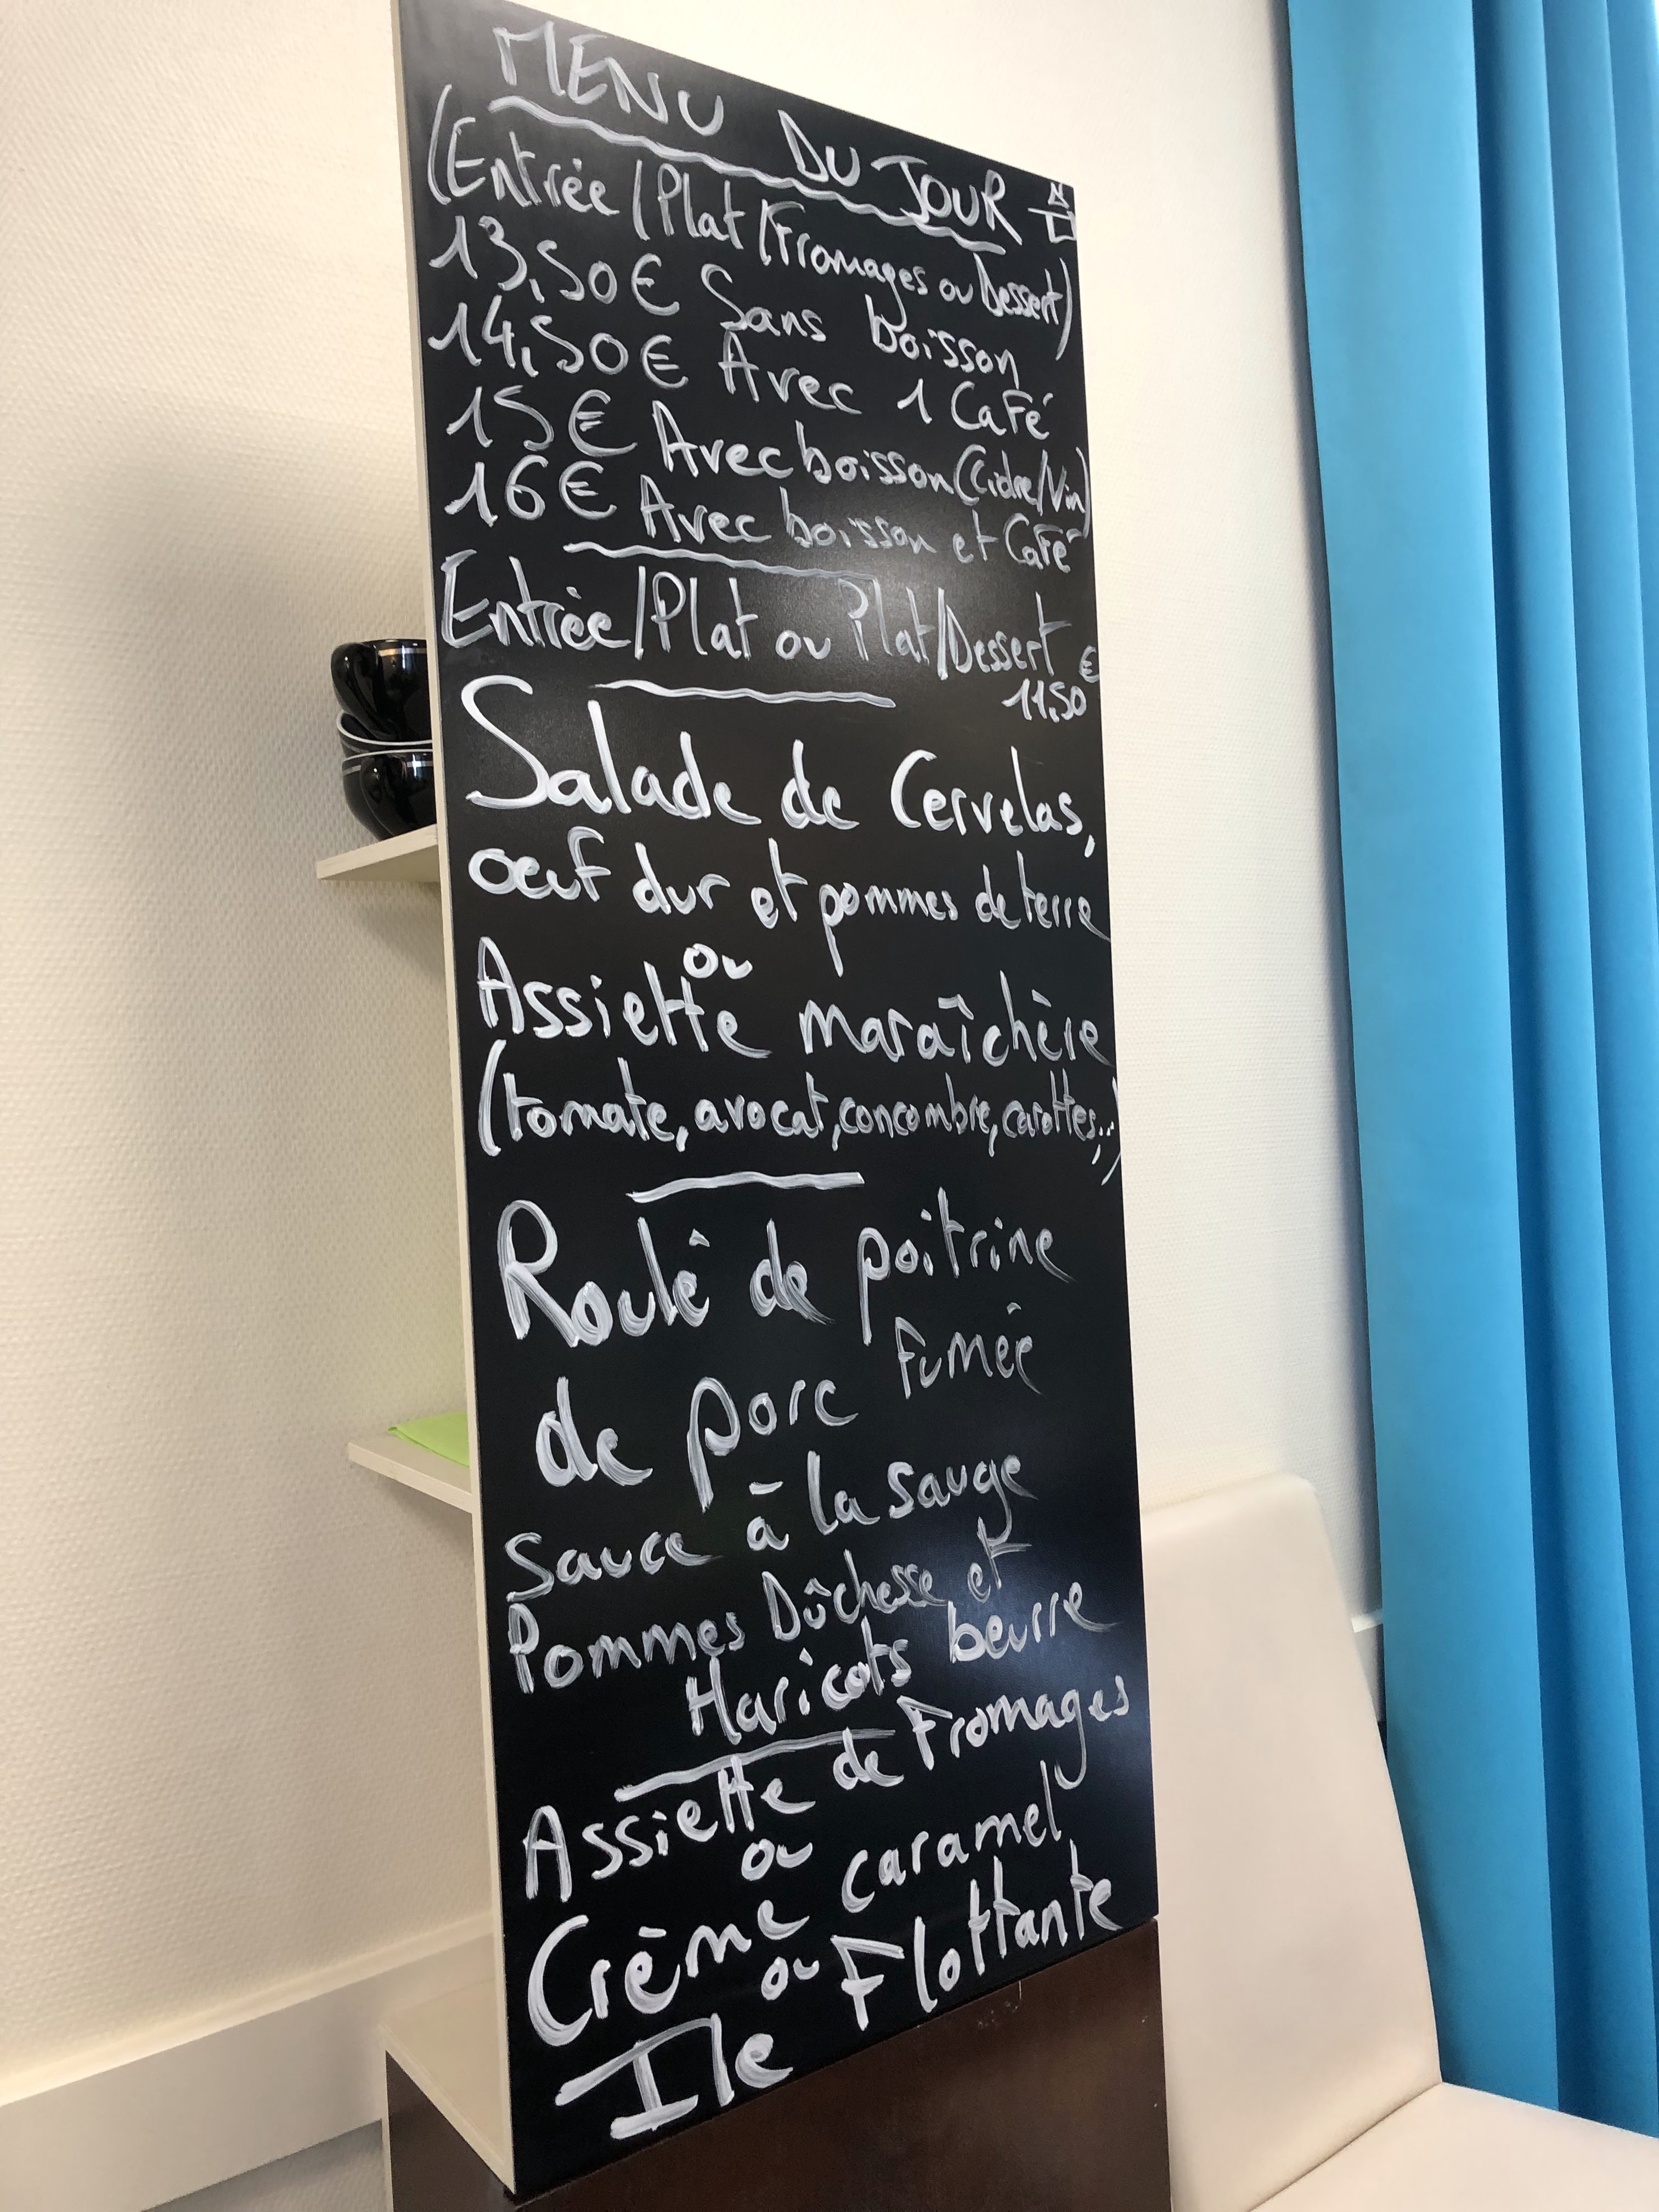 MENU DU JOUR
(Entrée/Plat/Fromages ou Dessert)
13,50€ Sans boisson
14,50€ Avec 1 Café
15€ Avec boisson (Cidre/Vin)
16€ Avec boisson et Café
Entrée/Plat ou Plat/Dessert
11,50€
Salade de Cervelas,
oeuf dur et pommes de terre
ou
Assiette maraîchère
(tomate, avocat, concombre, carottes...)
Roulé de poitrine
fumée
de porc
Sauce à la sauge
Pommes Dûchesse et
Haricots beurre
Assiette de Fromages
ou
Crème caramel
ou
Ile Flottante